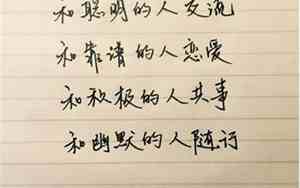 和聪明的人交流
和靠谱的人恋爱
和积极的人共事
和幽默的人随行